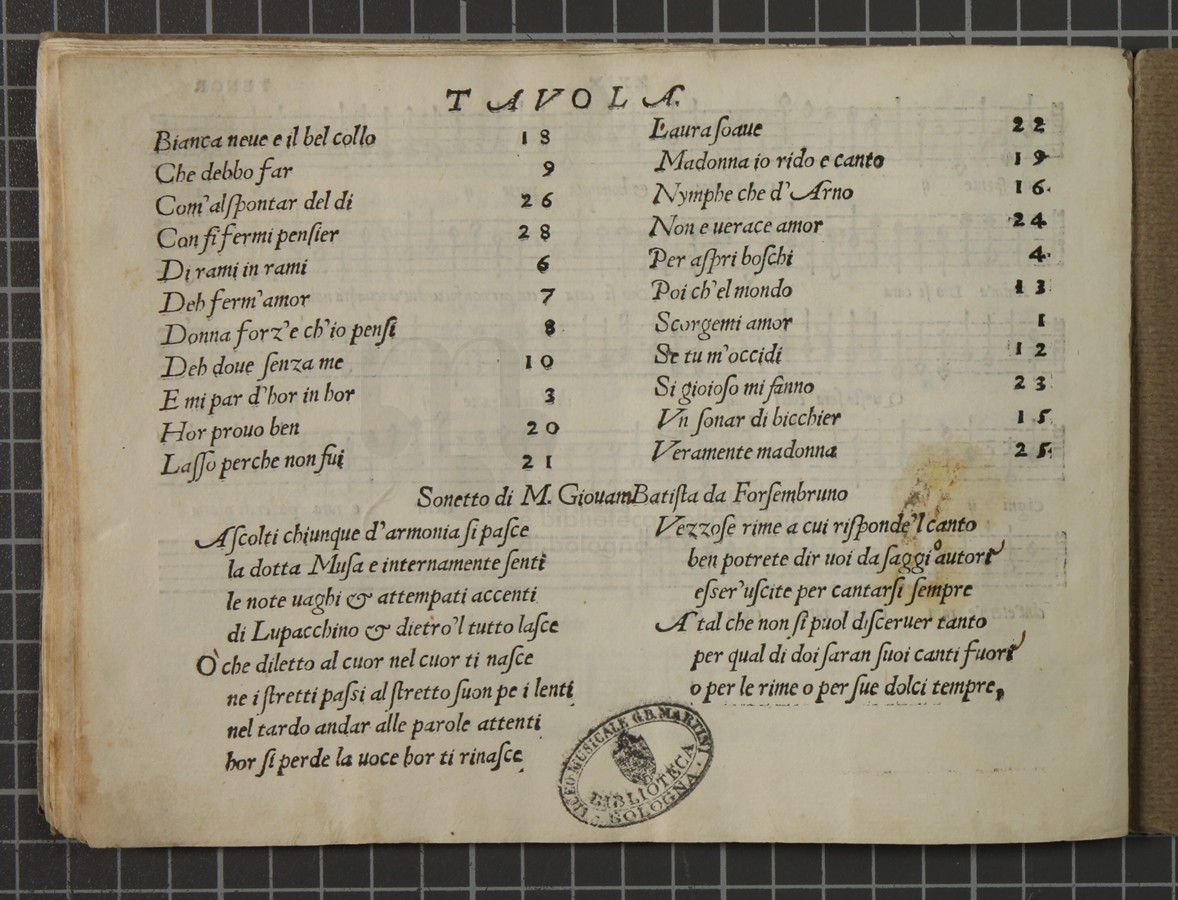 TAVOLA.
Bianca neue e il bel collo 18
Che debbo far 9
Com'alſpontar del di 26
Con ſi fermi penſier 28
Di rami in rami 6
Deh ferm'amor 7
Donna forz'e ch'io penſi 8
Deh doue ſenza me 10
E mi par d'hor in hor 3
Hor prouo ben 20
Laſſo perche non fui 21
Laura ſoaue 22
Madonna io rido e canto 19
Nymphe che d'Arno 16.
Non e uerace amor 24
Per aſpri boſchi 4.
Poi ch'el mondo 13
Scorgemi amor 1
Se tu m'occidi 12
Si gioioſo mi fanno 23
Vn ſonar di bicchier 15.
Veramente madonna 25.
Sonetto di M. GiouamBatiſta da Forſembruno
Aſcolti chiunque d'armonia ſi paſce
la dotta Muſa e internamente ſenti
le note uaghi & attempati accenti
di Lupacchino & dietro'l tutto laſce
O che diletto al cuor nel cuor ti naſce
ne i ſtretti paſſi al ſtretto ſuon pe i lenti
nel tardo andar alle parole attenti
hor ſi perde la uoce hor ti rinaſce
Vezzoſe rime a cui riſponde'l canto
ben potrete dir uoi da ſaggi autori
eſſer'uſcite per cantarſi ſempre
A tal che non ſi puol diſceruer tanto
per qual di doi ſaran ſuoi canti fuori
o per le rime o per ſue dolci tempre,
LICEO MUSICALE G.B. MARTINI
BIBLIOTECA
BOLOGNA